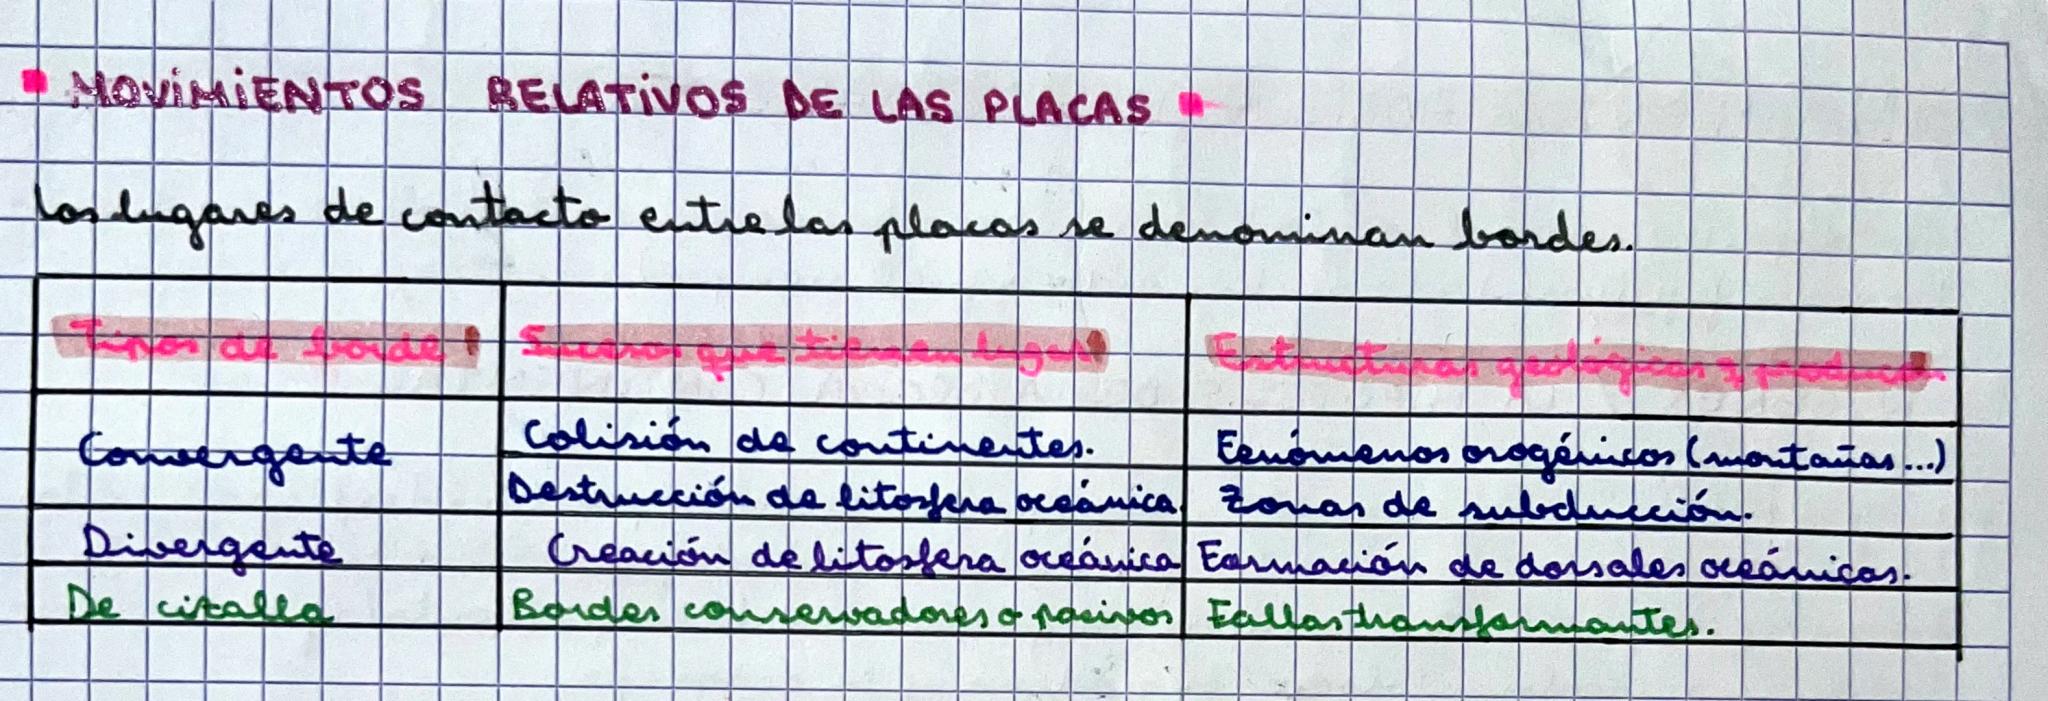 MOVIMIENTOS RELATIVOS DE LAS PLACAS
Los lugares de contacto entre las placas se denominan bordes.
Tipos de borde Sucesos que tienen lugar Estructuras geológicas q producen
Convergente Colisión de continentes. Fenómenos orogénicos (montañas...)
Destrucción de litosfera oceánica Zonas de subducción.
Divergente Creación de litosfera oceánica Formación de dorsales oceánicas.
De cizalla Bordes conservadores o pasivos Fallas transformantes.